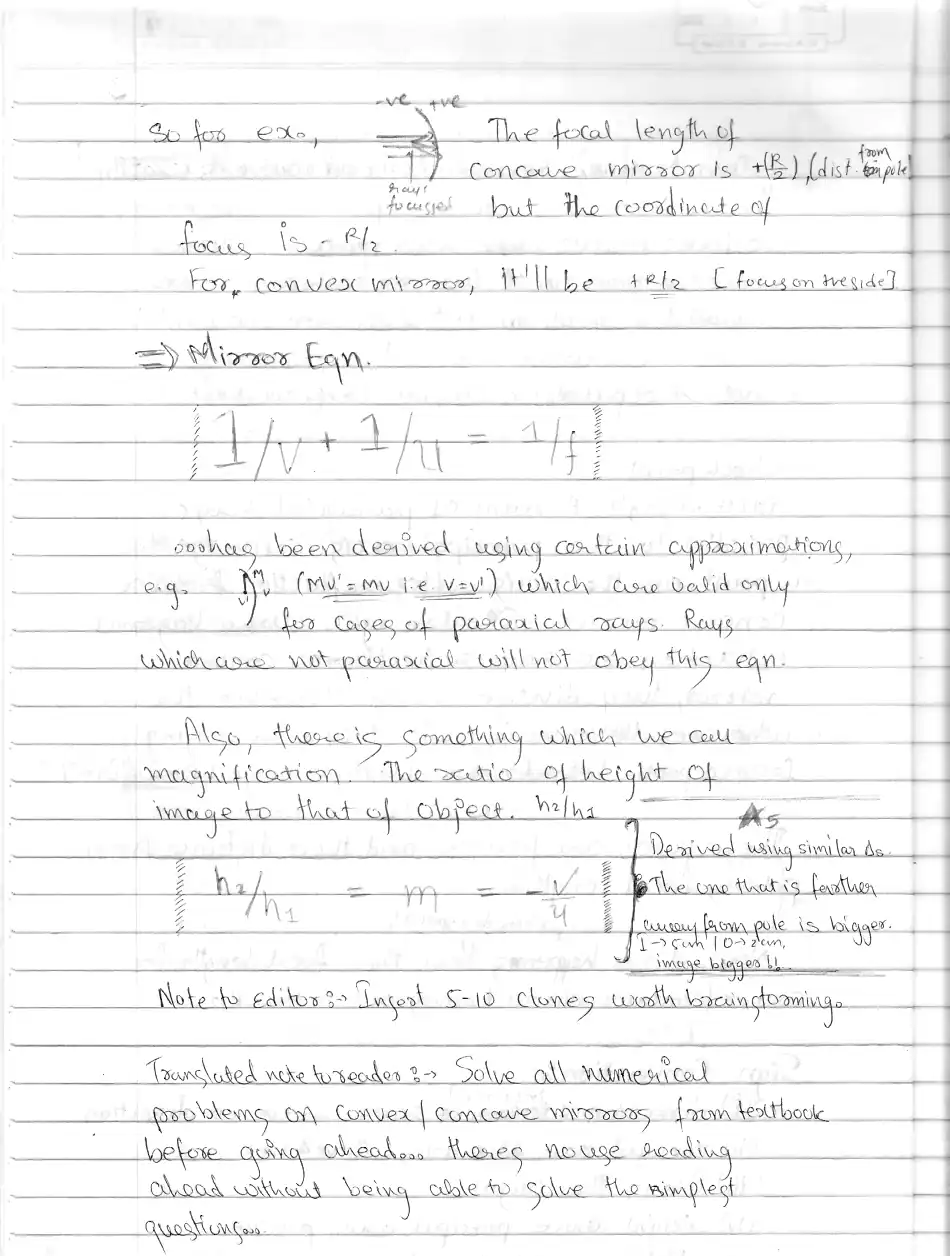 -ve +ve
So for ex., The focal length of
concave mirror is +(R/2), (dist. from pole)
rays
focussed
but the coordinate of
focus is - R/2.
For, convex mirror, it'll be +R/2 [focus on +ve side]
=> Mirror Eqn.
1/v + 1/u = 1/f
...has been derived using certain approximations,
e.g. (MV' = MV i.e. V=V') which are valid only
for cases of paraxial rays. Rays
which are not paraxial will not obey this eqn.
Also, there is something which we call
magnification. The ratio of height of
image to that of object. h2/h1
★5
h2/h1 = m = -v/u
Derived using similar Δs.
The one that is farther
away from pole is bigger.
I → 5cm | O → 2cm,
image bigger!!
Note to Editor :→ Insert 5-10 clones worth brainstorming.
Translated note to reader :→ Solve all numerical
problems on convex/concave mirrors from textbook
before going ahead... theres no use reading
ahead without being able to solve the simplest
questions...